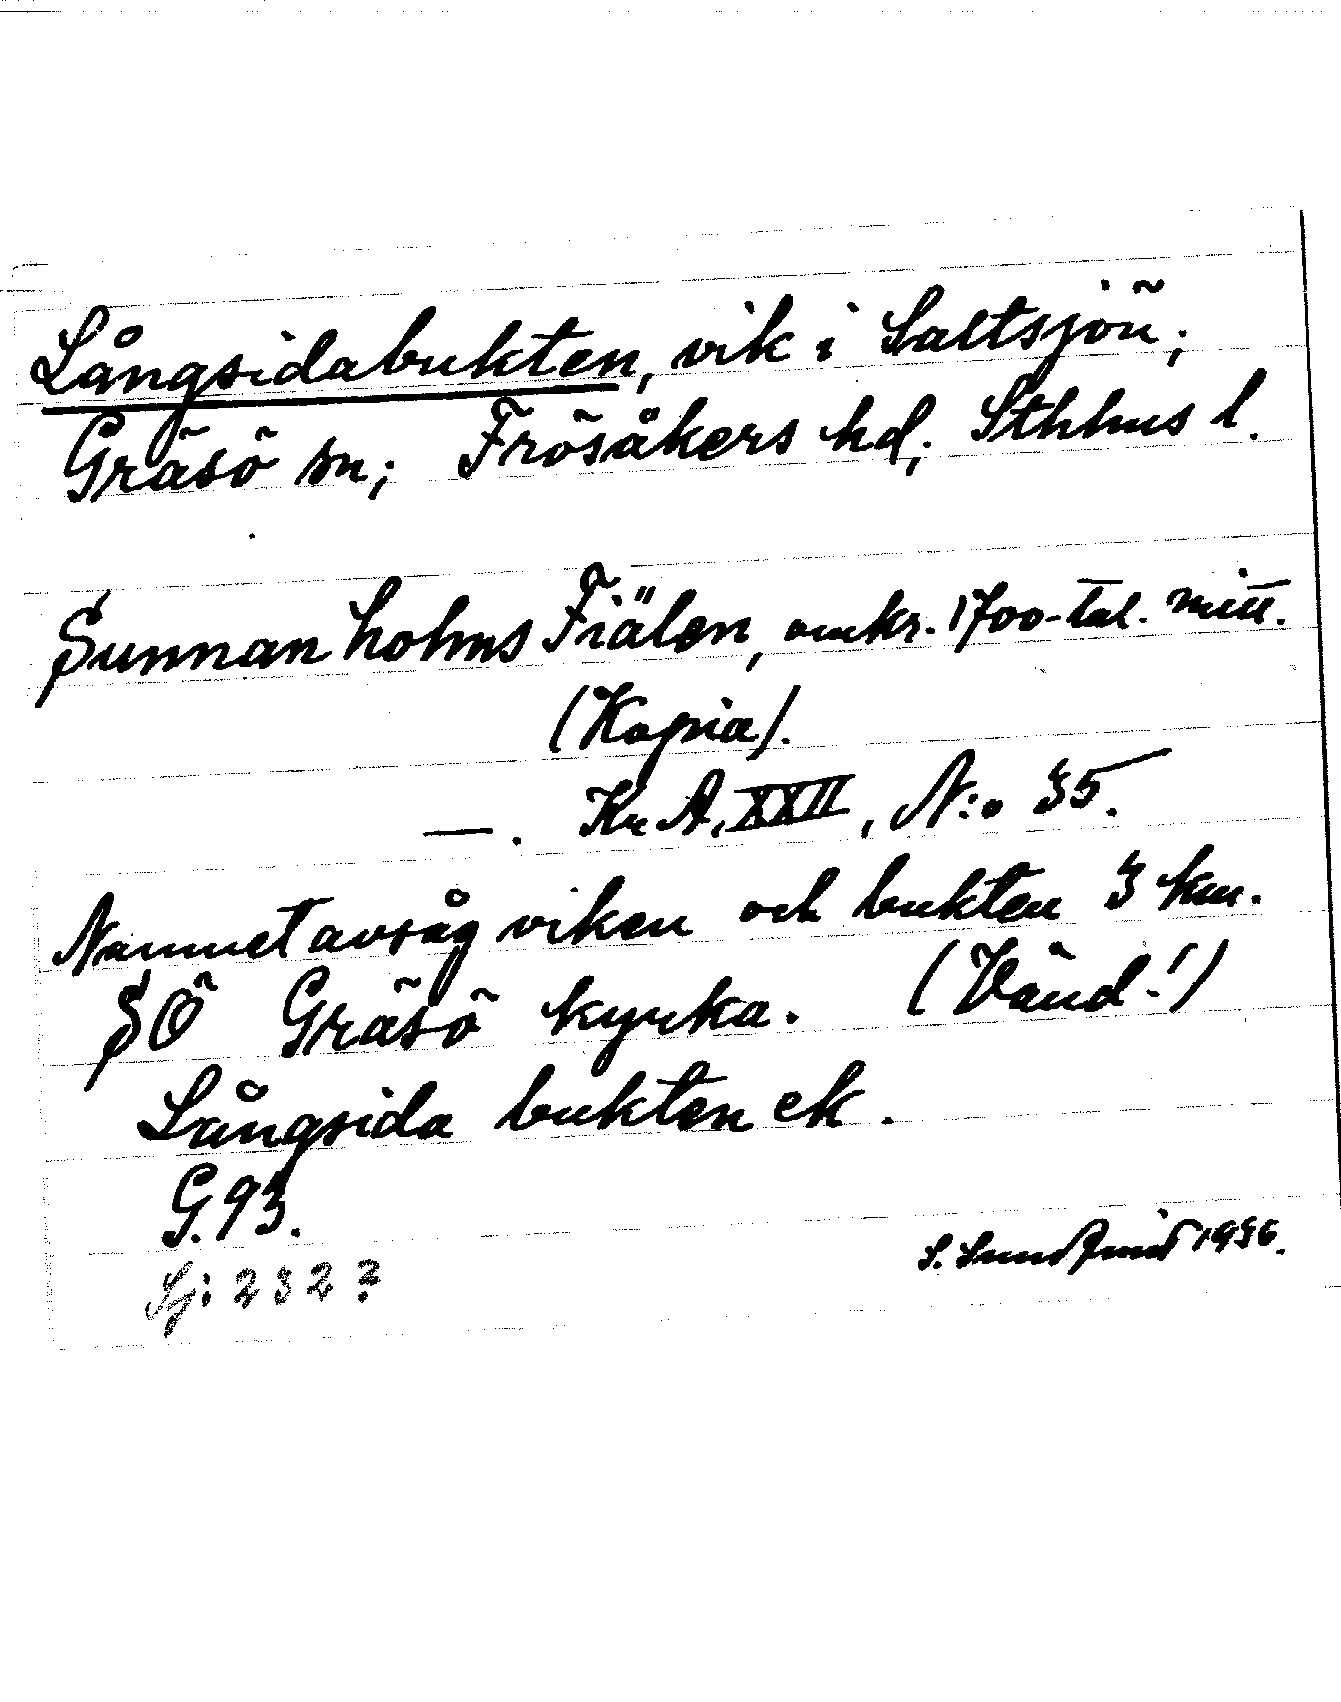 Långsidabukten, vik i Saltsjön;
Gräsö sn; Frösåkers hd; Sthhus l.
Sunnanholms Fiälen, omkr. 1700-tal. mitt.
(Kopia).
—. Kr A, XXII, N:o 35.
Namnet avsåg viken och bukten 3 km.
SÖ Gräsö kyrka. (Vänd!)
Långsida bukten ek.
G.93.
S. Sundqvist 1936.
Sj: 232?